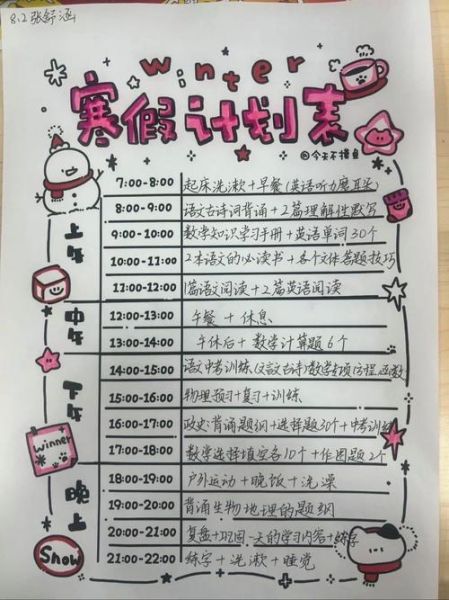 8.2 张舒涵
winter
寒假计划表
@今天不摸鱼
上午
7:00-8:00 起床洗漱+早餐(英语听力磨耳朵)
8:00-9:00 语文古诗词背诵+2篇理解性默写
9:00-10:00 数学知识学习手册+英语单词30个
10:00-11:00 2本语文的必读书+各个文体答题技巧
11:00-12:00 1篇语文阅读+2篇英语阅读
中午
12:00-13:00 午餐+休息
13:00-14:00 午休后+数学计算题6个
下午
14:00-15:00 语文中考训练(文言文古诗)数学专项(方程,函数)
15:00-16:00 物理预习+复习+训练
16:00-17:00 政史:背诵题纲+选择题30个+中考训练
17:00-18:00 数学选择填空各10个+作图题2个
winner
晚上
18:00-19:00 户外运动+晚饭+洗澡
19:00-20:00 背诵生物地理的题纲
20:00-21:00 复盘+巩固一天的学习内容+练字
21:00-22:00 练字+洗漱+睡觉
Snow